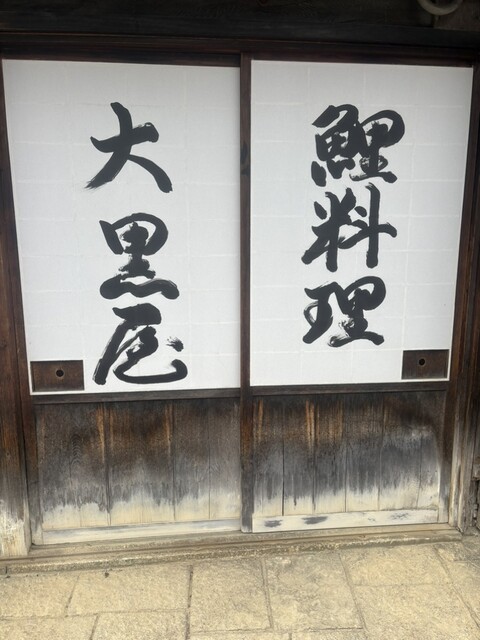 鯉料理
大黒屋